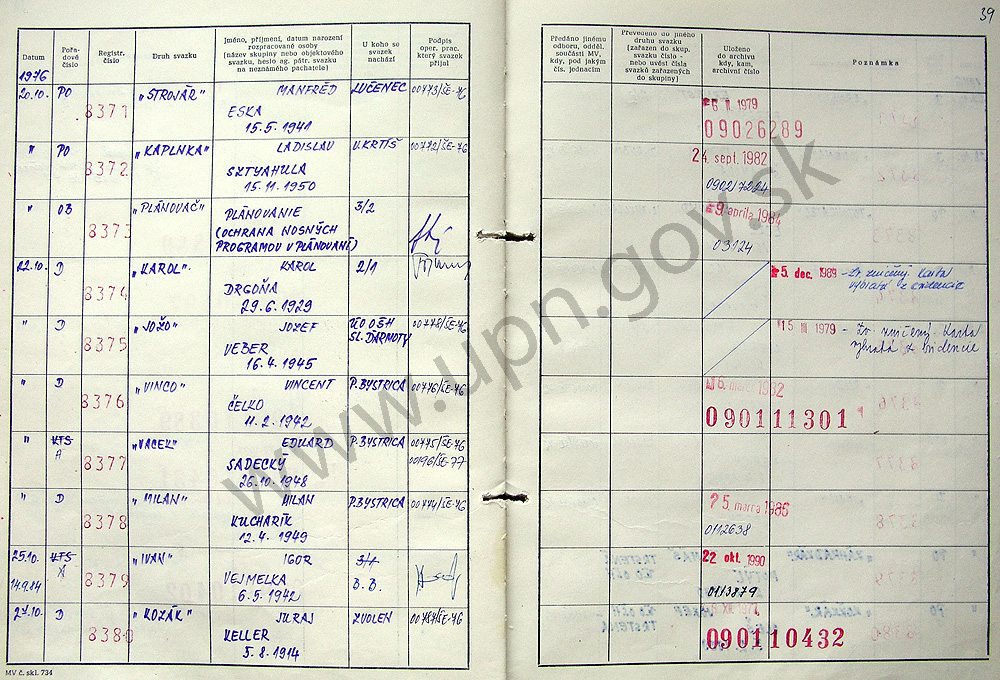 39
Datum
Pořa-
dové
číslo
Registr.
číslo
Druh svazku
Jméno, příjmení, datum narození
rozpracované osoby
(název skupiny nebo objektového
svazku, heslo ag. pátr. svazku
na neznámého pachatele)
U koho se
svazek
nachází
Podpis
oper. prac.
který svazek
přijal
Předáno jinému
odboru, odděl.
součásti MV,
kdy, pod jakým
čís. jednacím
Převedeno do jiného
druhu svazku
(zařazen do skup.
svazku číslo -
nebo uvést čísla
svazků zařazených
do skupiny)
Uloženo
do archivu
kdy, kam,
archivní číslo
Poznámka
1976
20.10. PO 8371 „STROJÁR" MANFRÉD LUČENEC 00773/ŠE-76
ESKA
15.5.1941
6 II 1979
09026289
" PO 8372 „KAPLNKA" LADISLAV V.KRTÍŠ 00772/ŠE-76
SZTYAHULA
15.11.1950
24. sept. 1982
" OB 8373 „PLÁNOVAČ" PLÁNOVANIE 3/2
(OCHRANA NOSNÝCH
PROGRAMOV V PLÁNOVANÍ)
9. apríla 1984
03124
22.10. D 8374 „KAROL" KAROL 2/1
DRGOŇA
29.6.1929
5. dec. 1989 - Zv. zničený. Karta
vybratá z evidencie
" D 8375 „JOŽO" JOZEF ÚO OŠH 00778/ŠE-76
VEBER SL. ĎARMOTY
16.4.1945
15 III 1979 - Zv. zničený. Karta
vybratá z evidencie
" D 8376 „VINCO" VINCENT P.BYSTRICA 00776/ŠE-76
ČELKO
11.2.1942
6. marca 1982
090111301
" KTS 8377 „VACEK" EDUARD P.BYSTRICA 00775/ŠE-76
A SADECKÝ 00196/ŠE-77
26.10.1948
" D 8378 „MILAN" MILAN P.BYSTRICA 00774/ŠE-76
KUCHARÍK
12.4.1949
5. marca 1986
0112638
25.10. KTS 8379 „IVAN" IGOR 3/1
14.9.84 A VEJMELKA B.B.
6.5.1942
22 okt. 1990
0113879
27.10. D 8380 „KOZÁK" JURAJ ZVOLEN 00787/ŠE-76
KELLER
5.8.1914
090110432
MV č. skl. 734
www.upn.gov.sk